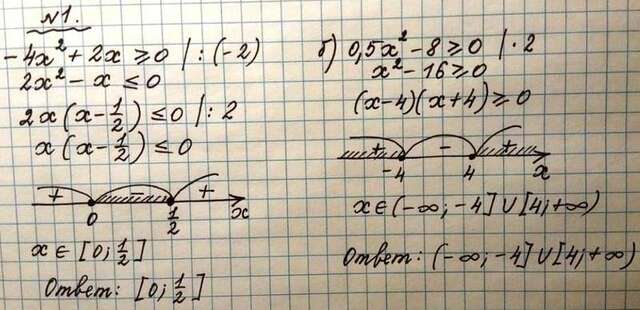 №1.
-4x² + 2x ≥ 0 | : (-2)
2x² - x ≤ 0
2x(x - 1/2) ≤ 0 | : 2
x(x - 1/2) ≤ 0
+ - +
0 1/2 x
x ∈ [0; 1/2]
Ответ: [0; 1/2]
б) 0,5x² - 8 ≥ 0 | · 2
x² - 16 ≥ 0
(x-4)(x+4) ≥ 0
+ - +
-4 4 x
x ∈ (-∞; -4] ∪ [4; +∞)
Ответ: (-∞; -4] ∪ [4; +∞)